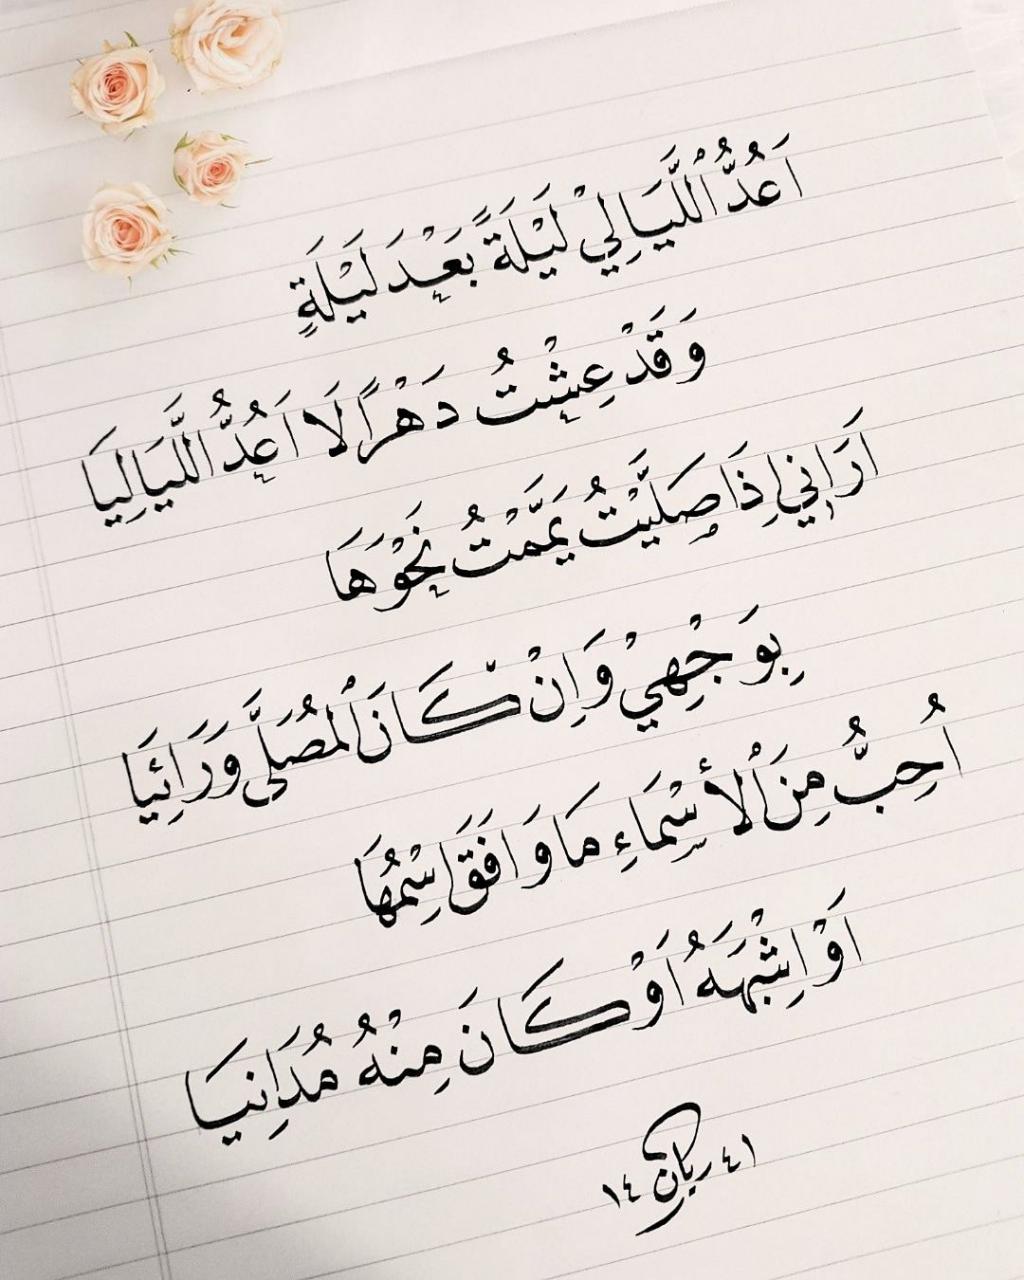 اَعُدُّ اللَّيَالِيْ لَيْلَةً بَعْدَ لَيْلَةٍ
وَقَدْ عِشْتُ دَهْرًا لَا اَعُدُّ اللَّيَالِيَا
اَرَانِي اِذَا صَلَّيْتُ يَمَّمْتُ نَحْوَهَا
بِوَجْهِيْ وَاِنْ كَانَ الْمُصَلَّى وَرَائِيَا
اُحِبُّ مِنَ الْأَسْمَاءِ مَا وَافَقَ اسِمْهَا
اَوْ اِشْبَهَهُ اَوْ كَانَ مِنْهُ مُدَانِيَا
٤١ ريان ١٤